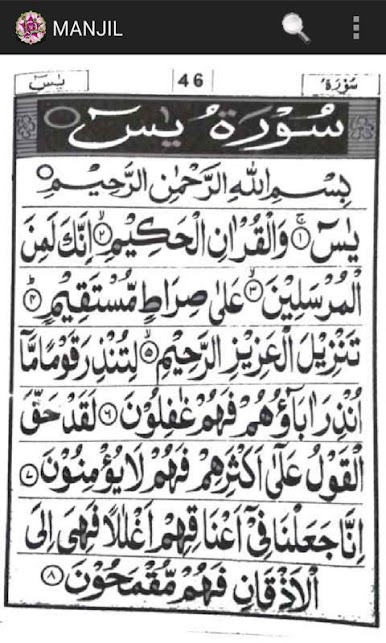 MANJIL
يٰسٓ 46 سُوْرَةُ
سُوْرَةُ يٰسٓ
بِسْمِ اللّٰهِ الرَّحْمٰنِ الرَّحِيْمِ
يٰسٓ ۚ﴿۱﴾ وَالْقُرْاٰنِ الْحَكِيْمِ ۙ﴿۲﴾ اِنَّكَ لَمِنَ
الْمُرْسَلِيْنَ ۙ﴿۳﴾ عَلٰى صِرَاطٍ مُّسْتَقِيْمٍ ؕ﴿۴﴾
تَنْزِيْلَ الْعَزِيْزِ الرَّحِيْمِ ۙ﴿۵﴾ لِتُنْذِرَ قَوْمًا مَّاۤ
اُنْذِرَ اٰبَآؤُهُمْ فَهُمْ غٰفِلُوْنَ ﴿۶﴾ لَقَدْ حَقَّ
الْقَوْلُ عَلٰٓى اَكْثَرِهِمْ فَهُمْ لَا يُؤْمِنُوْنَ ﴿۷﴾
اِنَّا جَعَلْنَا فِيْۤ اَعْنَاقِهِمْ اَغْلٰلًا فَهِيَ اِلَى
الْاَذْقَانِ فَهُمْ مُّقْمَحُوْنَ ﴿۸﴾